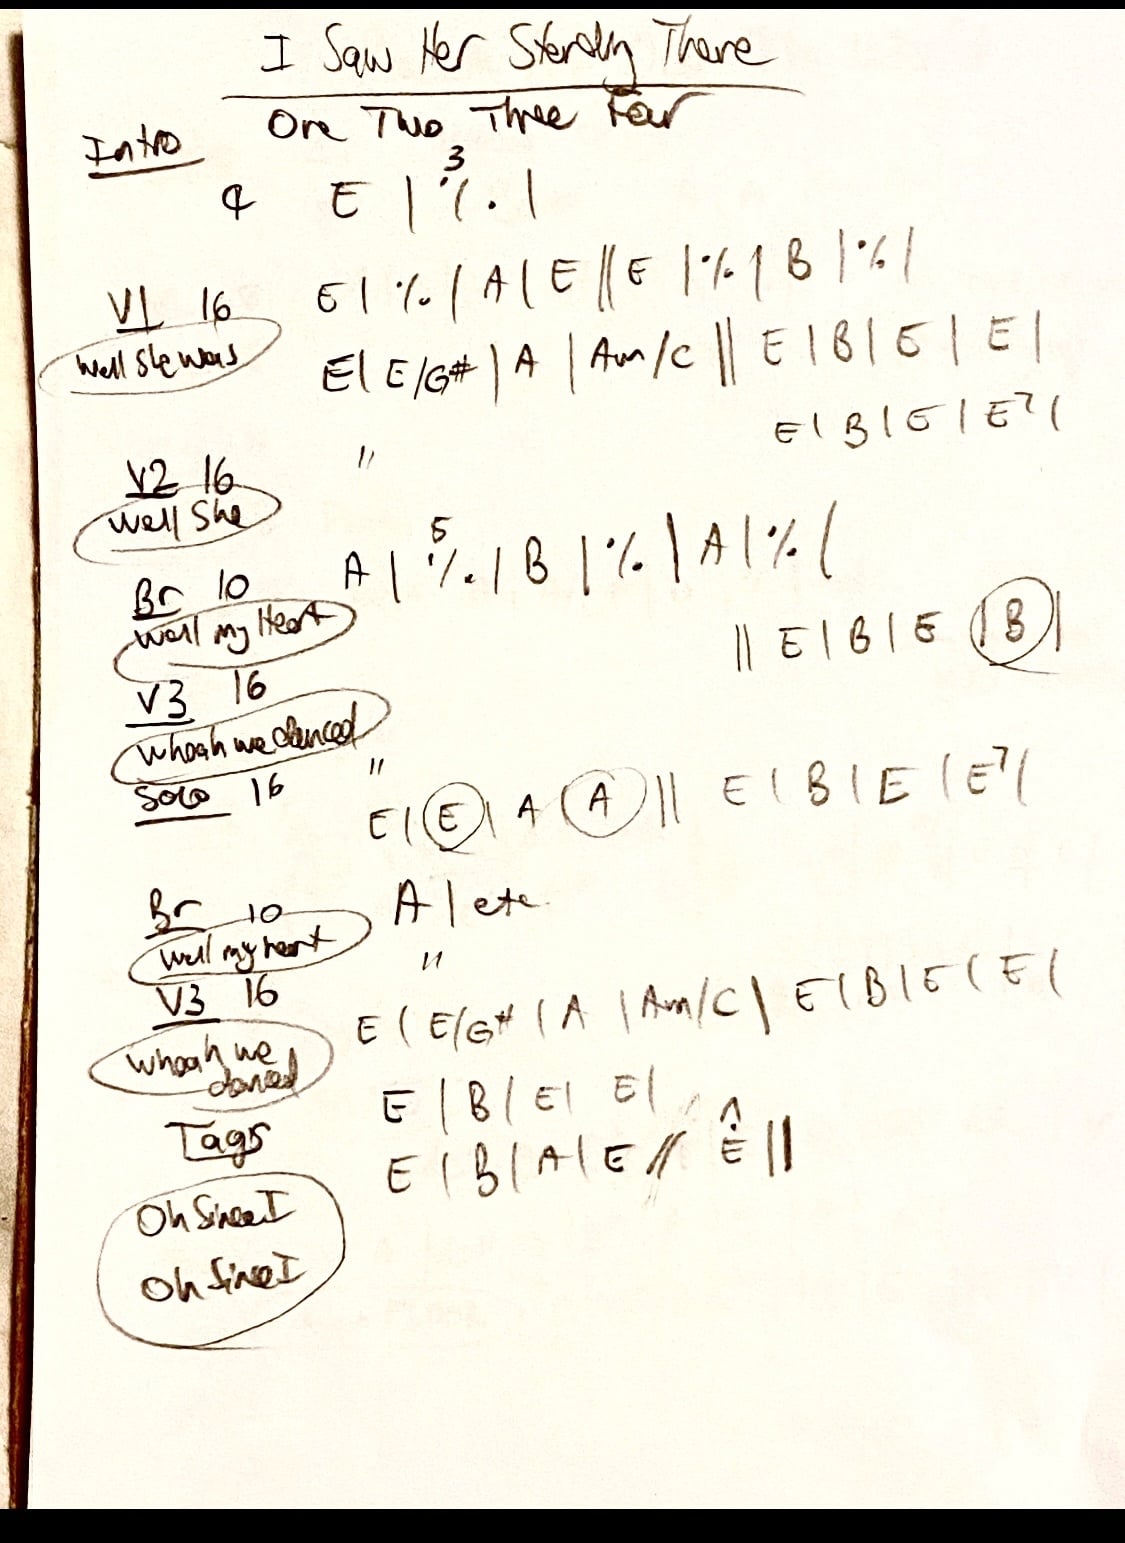 I Saw Her Standing There
One Two Three Four
Intro
4 E | 3 % |
V1 16 E | % | A | E || E | % | B | % |
Well She was E | E/G# | A | Am/C || E | B | E | E |
E | B | E | E7 |
V2 16 "
Well She
Br 10 A | 5 % | B | % | A | % |
Well my Heart
|| E | B | E | B |
V3 16
Whoah we danced "
Solo 16 E | E | A A || E | B | E | E7 |
Br 10 A | etc
Well my heart "
V3 16 E | E/G# | A | Am/C | E | B | E | E |
Whoah we danced
E | B | E | E |
Tags E | B | A | E // E ||
Oh Since I
Oh Since I